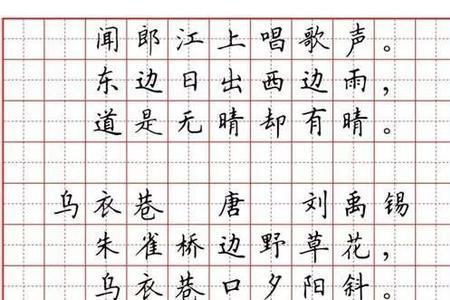 闻郎江上唱歌声。
东边日出西边雨，
道是无晴却有晴。
乌衣巷 唐 刘禹锡
朱雀桥边野草花，
乌衣巷口夕阳斜。